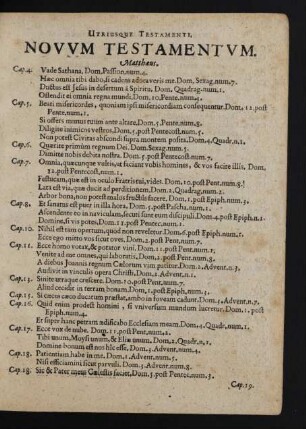 Utriusque Testamenti,
NOVVM TESTAMENTVM.
Matthæus.
Cap.4. Vade Sathana. Dom. Passion. num.4.
Hæc omnia tibi dabo, si cadens adoraveris me. Dom. Sexag. num.7.
Ductus est Jesus in desertum à Spiritu. Dom. Quadrag. num.1.
Ostendit ei omnia regna mundi. Dom. 10. Pente. num.5.
Cap.5. Beati misericordes, quoniam ipsi misericordiam consequentur. Dom. 22. post
Pente. num.1.
Si offers munus tuum ante altare. Dom. 5. post Pent. num.8.
Diligite inimicos vestros. Dom. 5. post Pentecost. num.5.
Non potest Civitas abscondi supra montem posita. Dom. 4. Quadr. n.1.
Cap.6. Quærite primùm regnum Dei. Dom. Sexag. num.5.
Dimitte nobis debita nostra. Dom. 5. post Pentecost. num.7.
Cap.7. Omnia, quæcunque vultis, ut faciant vobis homines, & vos facite illis. Dom.
22. post Pentecost. num.1.
Festucam, quæ est in oculo Fratris tui, videt. Dom. 10. post Pent. num.8.
Lata est via, quæ ducit ad perditionem. Dom. 2. Quadrag. num.5.
Arbor bona, non potest malos fructus facere. Dom. 1. post Epiph. num.6.
Cap.8. Et sanatus est puer in illa hora. Dom. 5. post Pascha. num.1.
Ascendente eo in naviculam, secuti sunt eum discipuli. Dom. 4. post Epiph. n.1.
Domine, si vis potes. Dom. 11. post Pentec. num.1.
Cap.10. Nihil est tam opertum, quod non reveletur. Dom. 6. post Epiph. num.1.
Ecce ego mitto vos sicut oves. Dom. 1. post Epiph. num.1.
Cap.11. Ecce homo vorax, & potator vini. Dom. 11. post Pent. num.1.
Venite ad me omnes, qui laboratis. Dom. 2. post Pent. num.8.
A diebus Joannis regnum Cælorum vim patitur. Dom. 2. Advent. n.5.
Audivit in vinculis opera Christi. Dom. 2. Advent. n.1.
Cap.13. Sinite utraque crescere. Dom. 10. post Pent. num.2.
Aliud cecidit in terram bonam. Dom. 5. post Epiph. num.1.
Cap.15. Si cæcus cæco ducatum præstat, ambo in foveam cadunt. Dom. 3. Advent. n.7.
Cap.16. Quid enim prodest homini, si universum mundum lucretur. Dom. 1. post
Epiph. num.4.
Et super hanc petram ædificabo Ecclesiam meam. Dom. 4. Quadr. num.1.
Cap.17. Ecce vox de nube. Dom. 11. post Pent. num.1.
Tibi unum, Moysi unum, & Eliæ unum. Dom. 2. Quadr. n.1.
Domine bonum est nos hîc esse. Dom. 4. Advent. num.5.
Cap.18. Patientiam habe in me. Dom. 1. Advent. num.5.
Nisi efficiamini sicut parvuli. Dom. 1. Advent. num.5.
Cap.18. Sic & Pater meus Cælestis faciet. Dom. 5. post Pentec. num.5.
Cap.19.